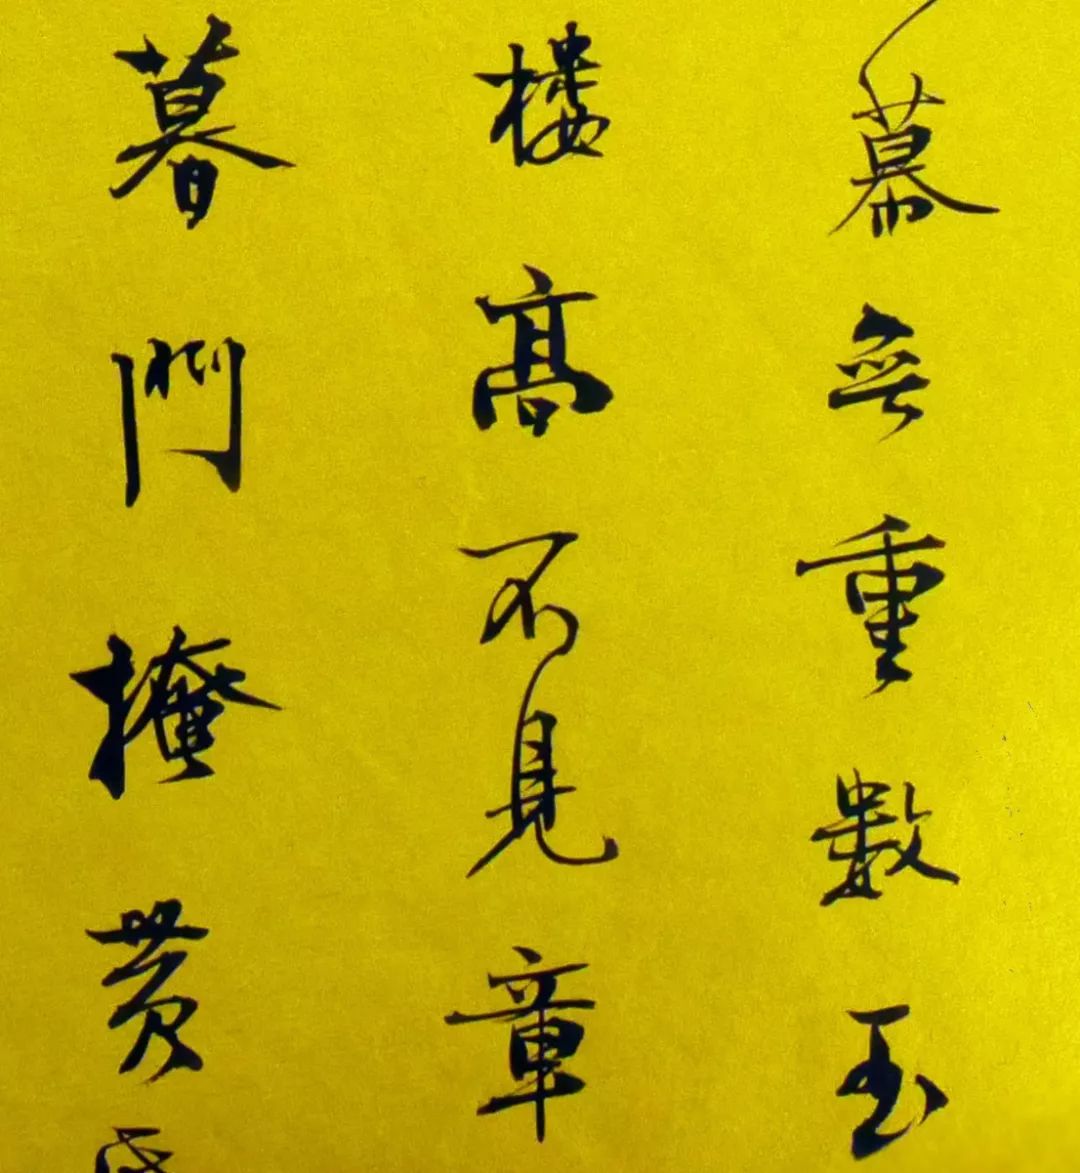 幕無重數玉
樓高不見章
暮門掩黃昏